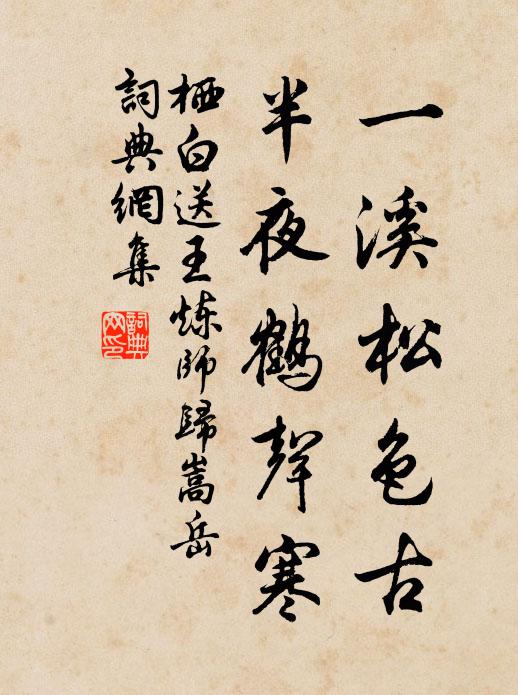 一溪松色古
半夜鶴聲寒
栖白送王炼師歸嵩岳
詞典網集
詞典网印